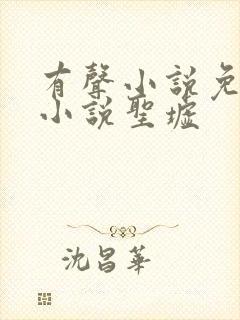 有聲小説免
小説聖墟
沈昌華